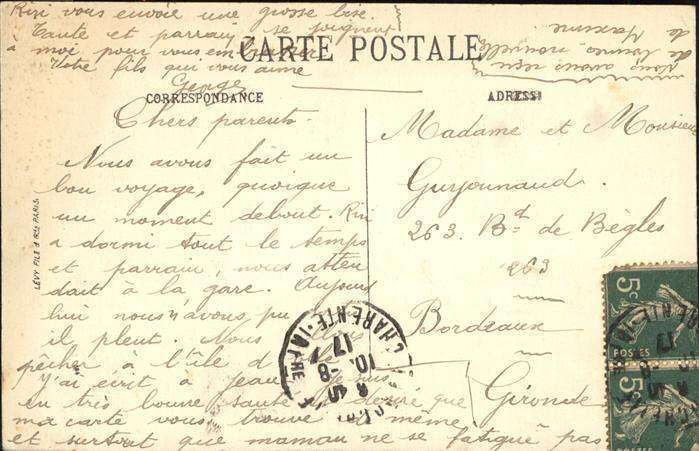 Riri vous envoie une grosse bise.
Tante et parrain se joignent
à moi pour vous embrasser
Votre fils qui vous aime
George
CARTE POSTALE
nous avons reçu
de bonnes nouvelles
de Maxime
CORRESPONDANCE
ADRESSE
Chers parents.
Nous avons fait un
bon voyage, quoique
un moment debout. Riri
a dormi tout le temps
et parrain, nous atten
dait à la gare. Aujourd
hui nous n'avons pu
il pleut. Nous
pêcher à l'île d
J'ai écrit à Jean
en très bonne santé désiré que
ma carte vous trouve de même
et surtout que maman ne se fatigue pas
Madame et Monsieur
Guyonnaud.
263. Bd de Bègles
263
Bordeaux
Gironde
LÉVY FILS & Cie PARIS
CHARENTE-INFRE
17 7
10.-8
5c
POSTES
5c
POSTES